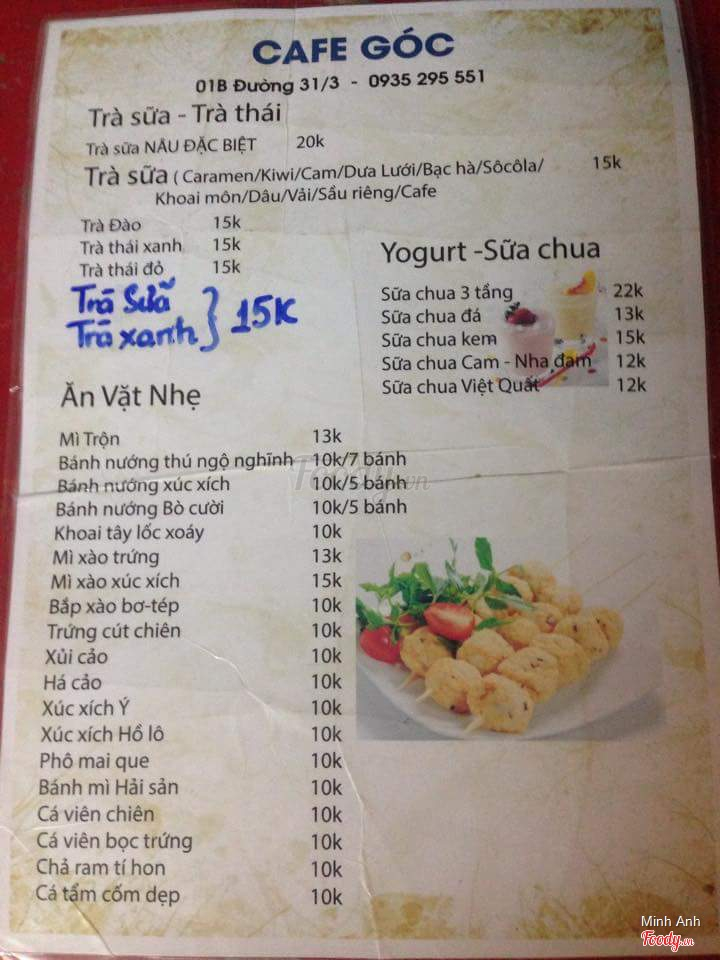 CAFE GÓC
01B Đường 31/3 - 0935 295 551
Trà sữa - Trà thái
Trà sữa NÂU ĐẶC BIỆT 20k
Trà sữa ( Caramen/Kiwi/Cam/Dưa Lưới/Bạc hà/Sôcôla/ 15k
Khoai môn/Dâu/Vải/Sầu riêng/Cafe
Trà Đào 15k
Trà thái xanh 15k
Trà thái đỏ 15k
Trà Sữa
Trà xanh } 15K
Yogurt -Sữa chua
Sữa chua 3 tầng 22k
Sữa chua đá 13k
Sữa chua kem 15k
Sữa chua Cam - Nha đam 12k
Sữa chua Việt Quất 12k
Ăn Vặt Nhẹ
Mì Trộn 13k
Bánh nướng thú ngộ nghĩnh 10k/7 bánh
Bánh nướng xúc xích 10k/5 bánh
Bánh nướng Bò cười 10k/5 bánh
Khoai tây lốc xoáy 10k
Mì xào trứng 13k
Mì xào xúc xích 15k
Bắp xào bơ-tép 10k
Trứng cút chiên 10k
Xủi cảo 10k
Há cảo 10k
Xúc xích Ý 10k
Xúc xích Hồ lô 10k
Phô mai que 10k
Bánh mì Hải sản 10k
Cá viên chiên 10k
Cá viên bọc trứng 10k
Chả ram tí hon 10k
Cá tẩm cốm dẹp 10k
Foody.vn
Minh Anh
Foody.vn